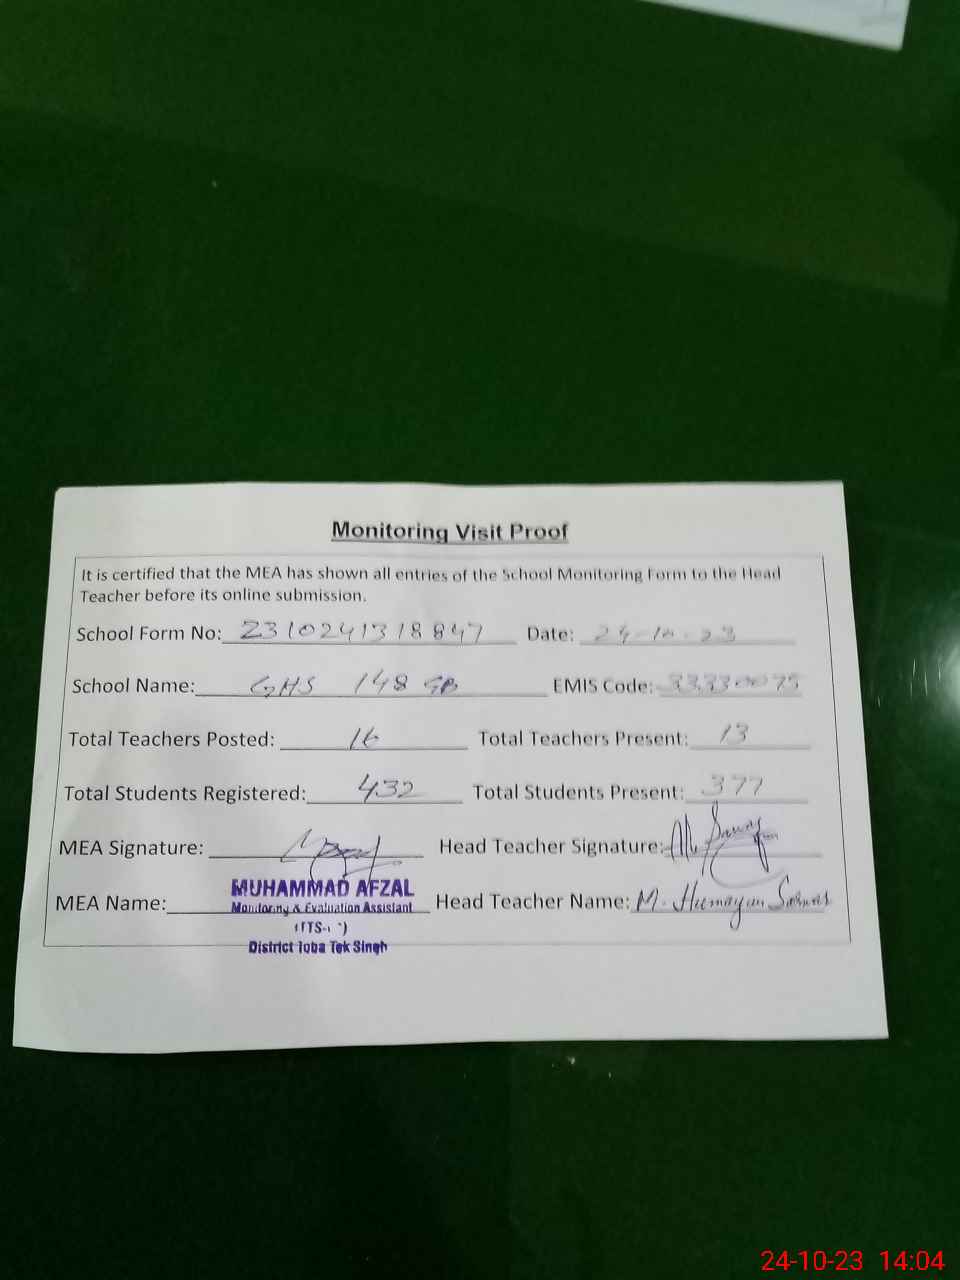 Monitoring Visit Proof
It is certified that the MEA has shown all entries of the School Monitoring Form to the Head
Teacher before its online submission.
School Form No: 2310241318847 Date: 24-10-23
School Name: GHS 148 GB EMIS Code: 33330075
Total Teachers Posted: 16 Total Teachers Present: 13
Total Students Registered: 432 Total Students Present: 377
MEA Signature: Head Teacher Signature:
MEA Name: MUHAMMAD AFZAL Head Teacher Name: M. Humayun Sarwar
Monitoring & Evaluation Assistant
District Toba Tek Singh
24-10-23 14:04